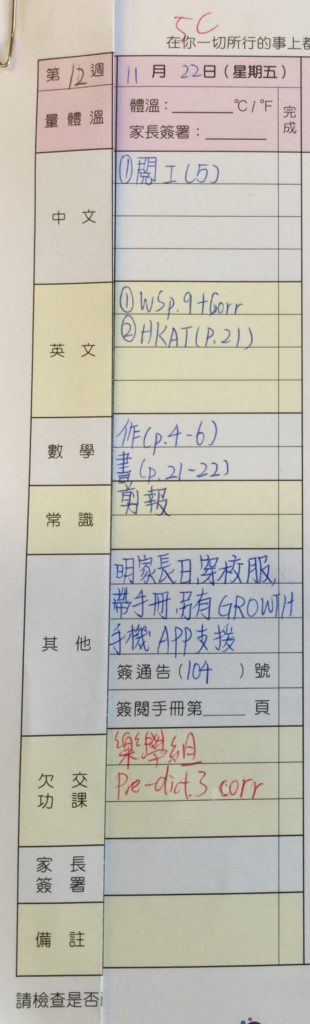 5C
在你一切所行的事上都
第12週 11月22日(星期五)
量體溫 體溫:______°C/°F 完成
家長簽署:______
中文 ①閱工(5)
英文 ①WSp.9+Corr
②HKAT(P.21)
數學 作(p.4-6)
書(p.21-22)
常識 剪報
其他 明家長日,穿校服,
帶手冊,另有GROWTH
手機APP支援
簽通告(104)號
簽閱手冊第____頁
欠交功課 樂學組
Pre-dict.3 corr
家長簽署
備註
請檢查是否